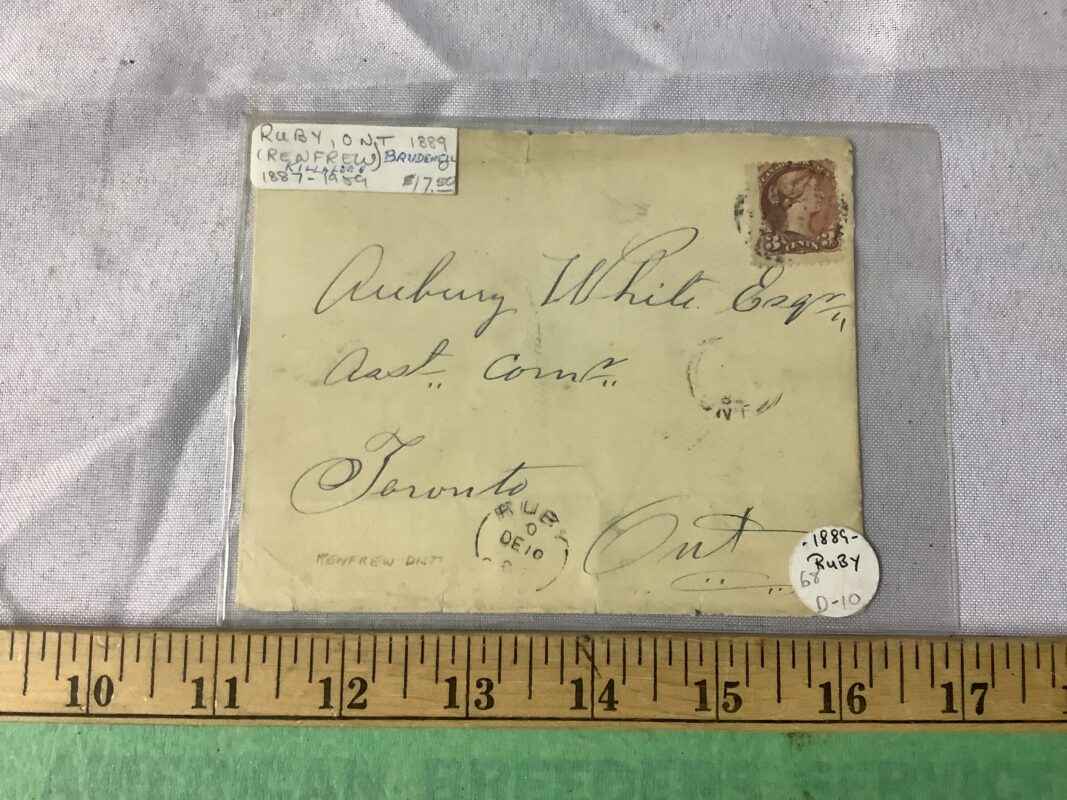 RUBY, ONT 1889
(RENFREW) BRUDENELL
KILLALOE
1887-1989 $17.50
3 CENTS 3
Aubury White Esqr
Asst. Comr.
NT
Toronto
RUBY
0
DE 10
Ont
RENFREW DIST
-1889-
RUBY
68
D-10
10 11 12 13 14 15 16 17